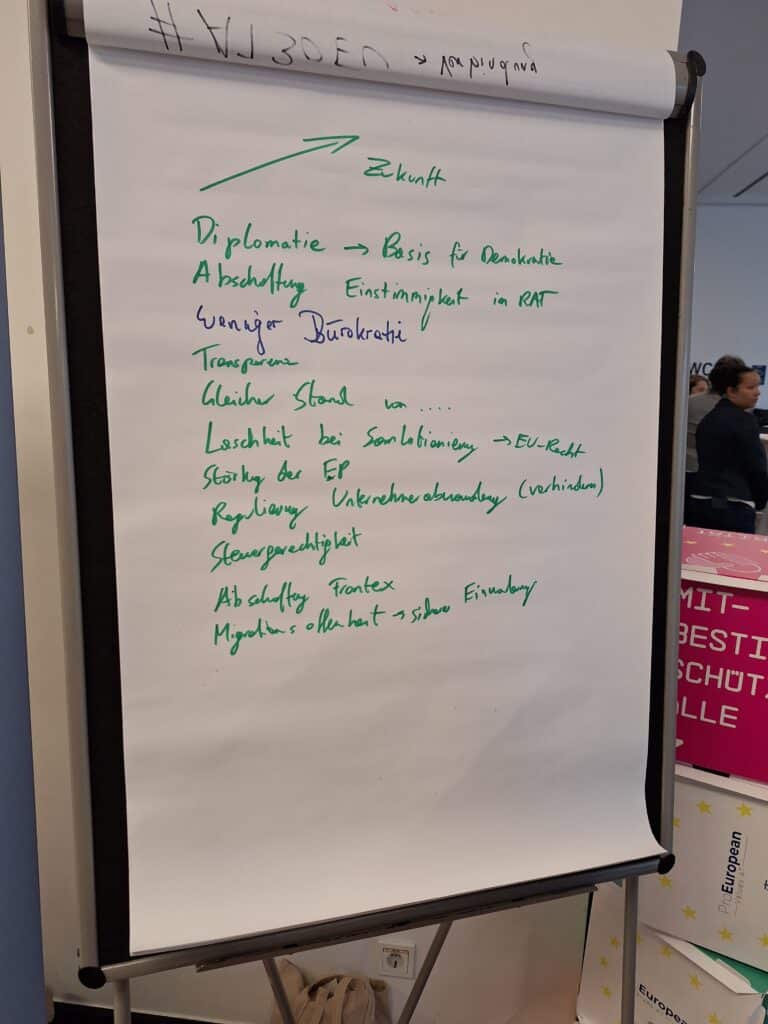 Zukunft
Diplomatie → Basis für Demokratie
Abschaffung Einstimmigkeit im RAT
Weniger Bürokratie
Transparenz
Gleicher Stand von ....
Laschheit bei Sanktionierung → EU-Recht
Stärkung der EP
Regulierung Unternehmerabwanderung (verhindern)
Steuergerechtigkeit
Abschaffung Frontex
Migrationsoffenheit → sichere Einwanderung
WC
MIT-
BESTI
SCHÜTZ
OLLE
ProEuropean
VALUES
European